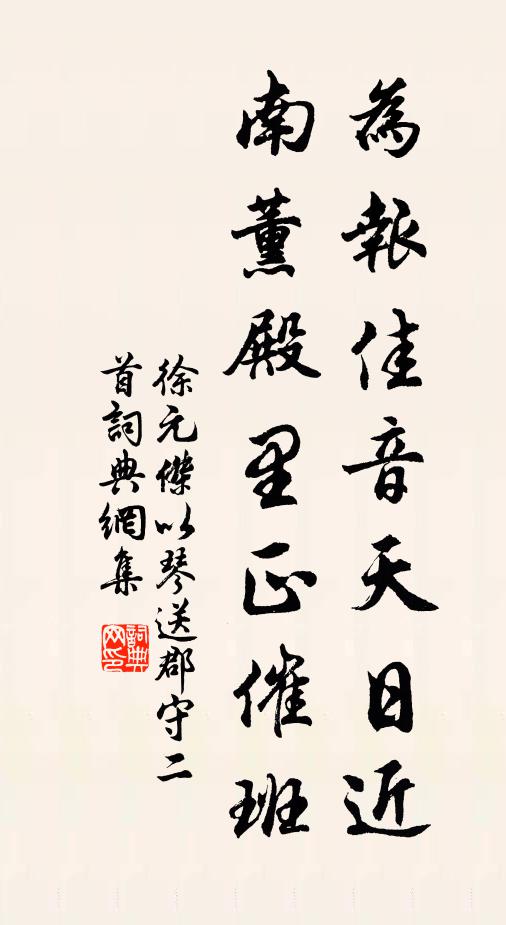 為報佳音天日近
南薰殿里正催班
徐元傑以琴送郡守二
首詞典網集
詞典網印